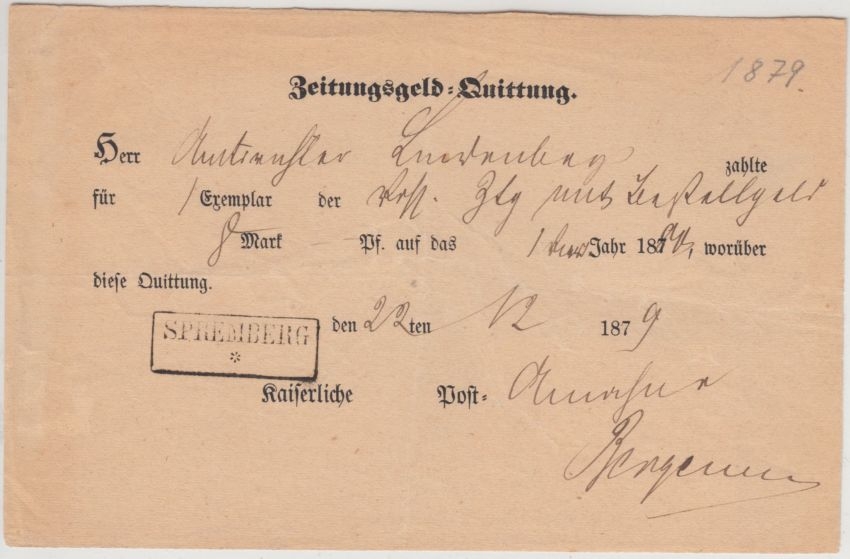 1879.
Zeitungsgeld-Quittung.
Herr Amtsrichter zahlte
für 1 Exemplar der Voss. Ztg mit Bestellgeld
8 Mark — Pf. auf das 1 Jahr 1880, worüber
diese Quittung.
SPREMBERG
*
den 22ten 12 1879
Kaiserliche Post-